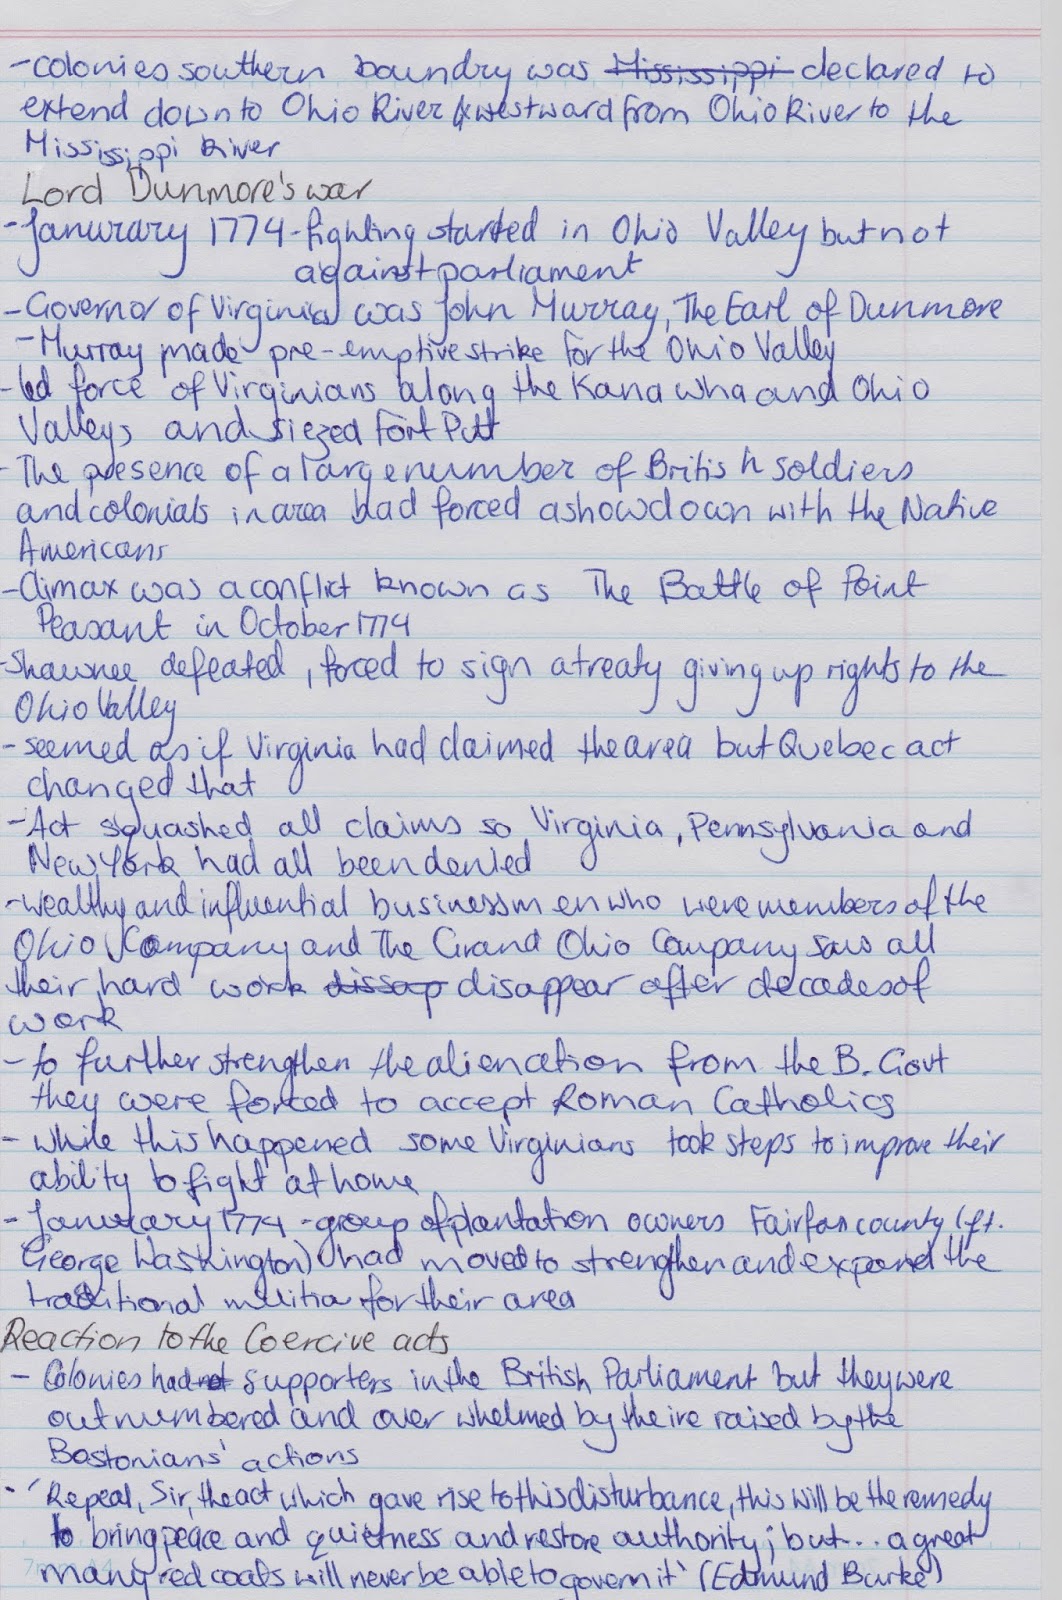 -colonies southern boundry was Mississippi declared to
extend down to Ohio River & westward from Ohio River to the
Mississippi River
Lord Dunmore's war
-Janurary 1774 - fighting started in Ohio Valley but not
against parliament
-Governor of Virginia was John Murray, The Earl of Dunmore
-Murray made pre-emptive strike for the Ohio Valley
-led force of Virginians along the Kanawha and Ohio
Valleys and siezed Fort Pitt
-The presence of a large number of British soldiers
and colonials in area had forced a showdown with the Native
Americans
-Climax was a conflict known as The Battle of Point
Peasant in October 1774
-Shawnee defeated, forced to sign a treaty giving up rights to the
Ohio Valley
-seemed as if Virginia had claimed the area but Quebec act
changed that
-Act squashed all claims so Virginia, Pennsylvania and
New York had all been denied
-wealthy and influential businessmen who were members of the
Ohio Company and The Grand Ohio Company saw all
their hard work dissap disappear after decades of
work
-to further strengthen the alienation from the B. Govt
they were forced to accept Roman Catholics
-while this happened some Virginians took steps to improve their
ability to fight at home
-Janurary 1774 - group of plantation owners Fairfax county (ft.
George Washington) had moved to strengthen and expand the
traditional militia for their area
Reaction to the Coercive acts
- Colonies had not supporters in the British Parliament but they were
outnumbered and over whelmed by the ire raised by the
Bostonians' actions
- 'Repeal, Sir, the act which gave rise to this disturbance, this will be the remedy
to bring peace and quietness and restore authority; but... a great
many red coats will never be able to govern it' (Edmund Burke)